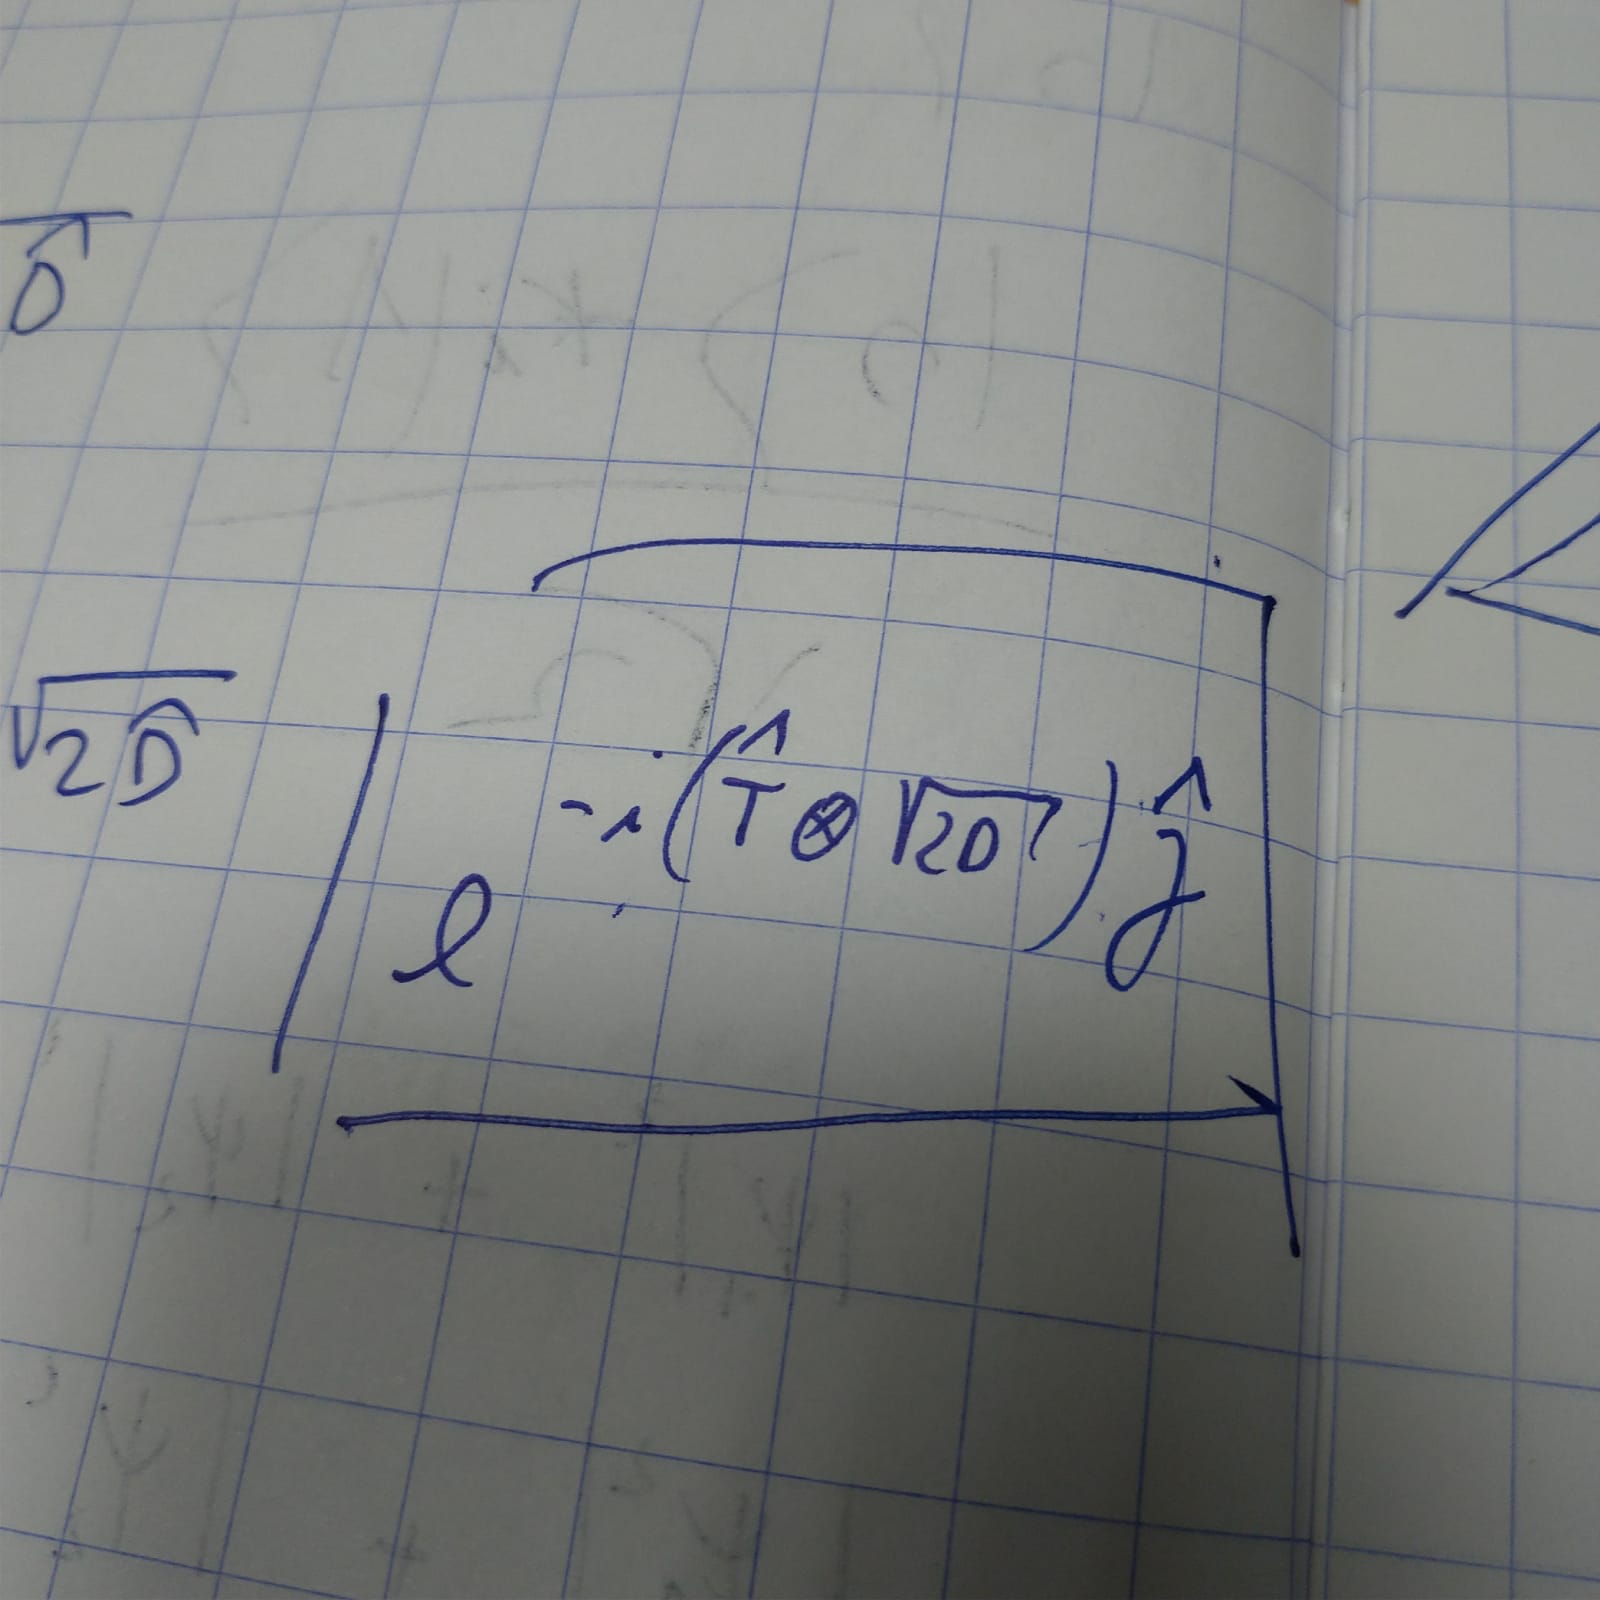 D̂
√2D̂ | e^{-i(T̂ ⊗ √2D) ĵ}